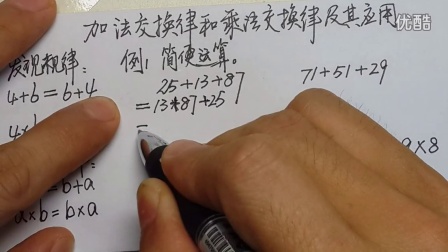 加法交换律和乘法交换律及其应用
发现规律:
4+b=b+4
4×b
=b+a
a×b=b×a
例: 简便运算。
25+13+87
=13+87+25
=
71+51+29
9×8
优酷